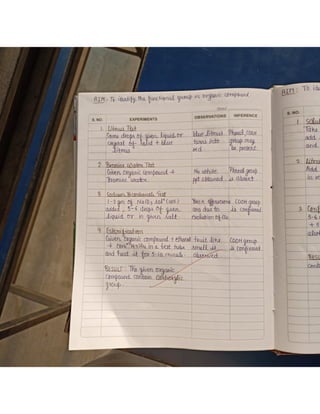 AIM: To identify the functional group in organic compound.
S. NO.
EXPERIMENTS
OBSERVATIONS
INFERENCE
1. Litmus Test
Some drops of given liquid or
crystal of solid + blue
litmus
blue litmus
turns into
red
Phenol, COOH
group may
be present
2. Bromine Water Test
Given organic compound +
bromine water
No white
ppt obtained
Phenol group
is absent
3. Sodium Bicarbonate Test
added, 5-6 drops of given
liquid or in given salt
Brisk
due to
evolution of CO2
COOH group
is confirmed
4. Esterification
Given organic compound + ethanol
+ conc. H2SO4 in a test tube
and heat it for 5-10 minute
fruit like
smell is
observed
COOH group
is confirmed
RESULT: The given organic
compound contain carboxylic
group.
AIM: To
S. NO.
1.
Take
add
and
2.
Add
3.
5-6
RESU